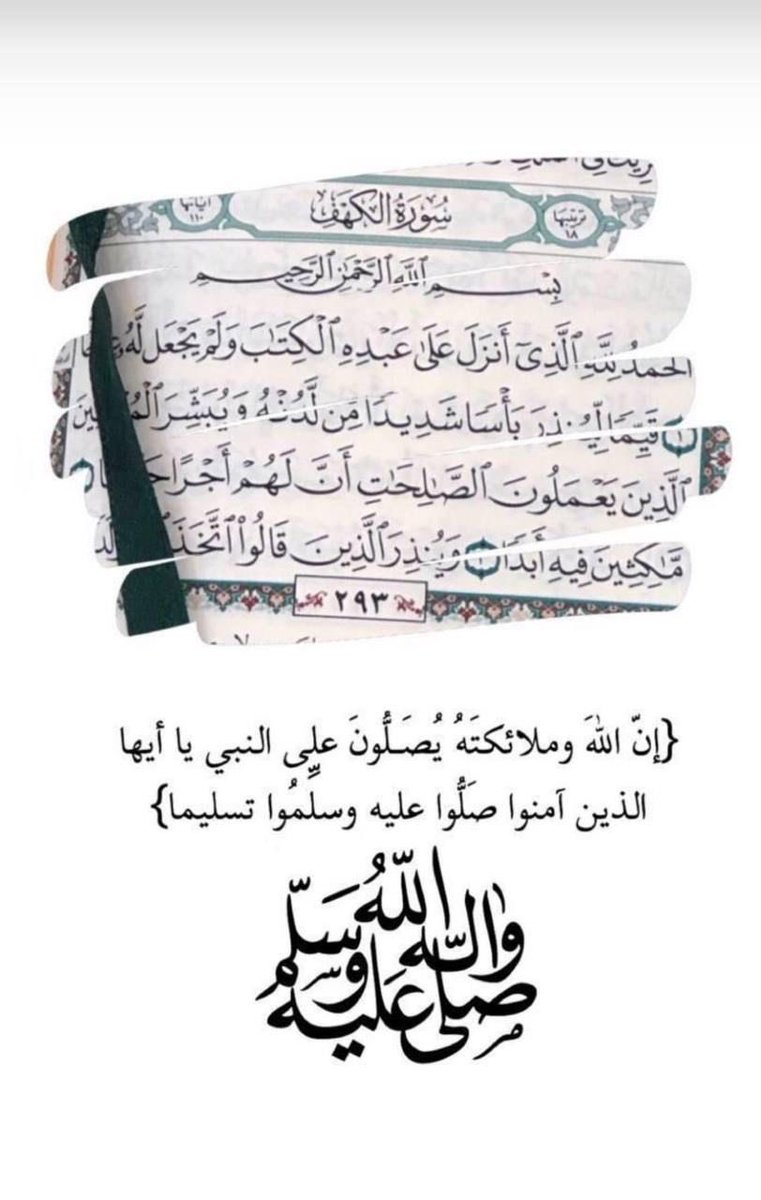 سُورَةُ الكَهْفِ
ترتيبها ١٨
آياتها ١١٠
بِسْمِ ٱللَّهِ ٱلرَّحْمَٰنِ ٱلرَّحِيمِ
ٱلْحَمْدُ لِلَّهِ ٱلَّذِىٓ أَنزَلَ عَلَىٰ عَبْدِهِ ٱلْكِتَٰبَ وَلَمْ يَجْعَل لَّهُۥ
١ قَيِّمًا لِّيُنذِرَ بَأْسًا شَدِيدًا مِّن لَّدُنْهُ وَيُبَشِّرَ
ٱلَّذِينَ يَعْمَلُونَ ٱلصَّٰلِحَٰتِ أَنَّ لَهُمْ أَجْرًا
مَّٰكِثِينَ فِيهِ أَبَدًا وَيُنذِرَ ٱلَّذِينَ قَالُوا۟ ٱتَّخَذَ
٢٩٣
{إنّ اللهَ وملائكتَهُ يُصَلُّونَ على النبي يا أيها
الذين آمنوا صَلُّوا عليه وسلِّمُوا تسليما}
صلى الله عليه واله وسلم